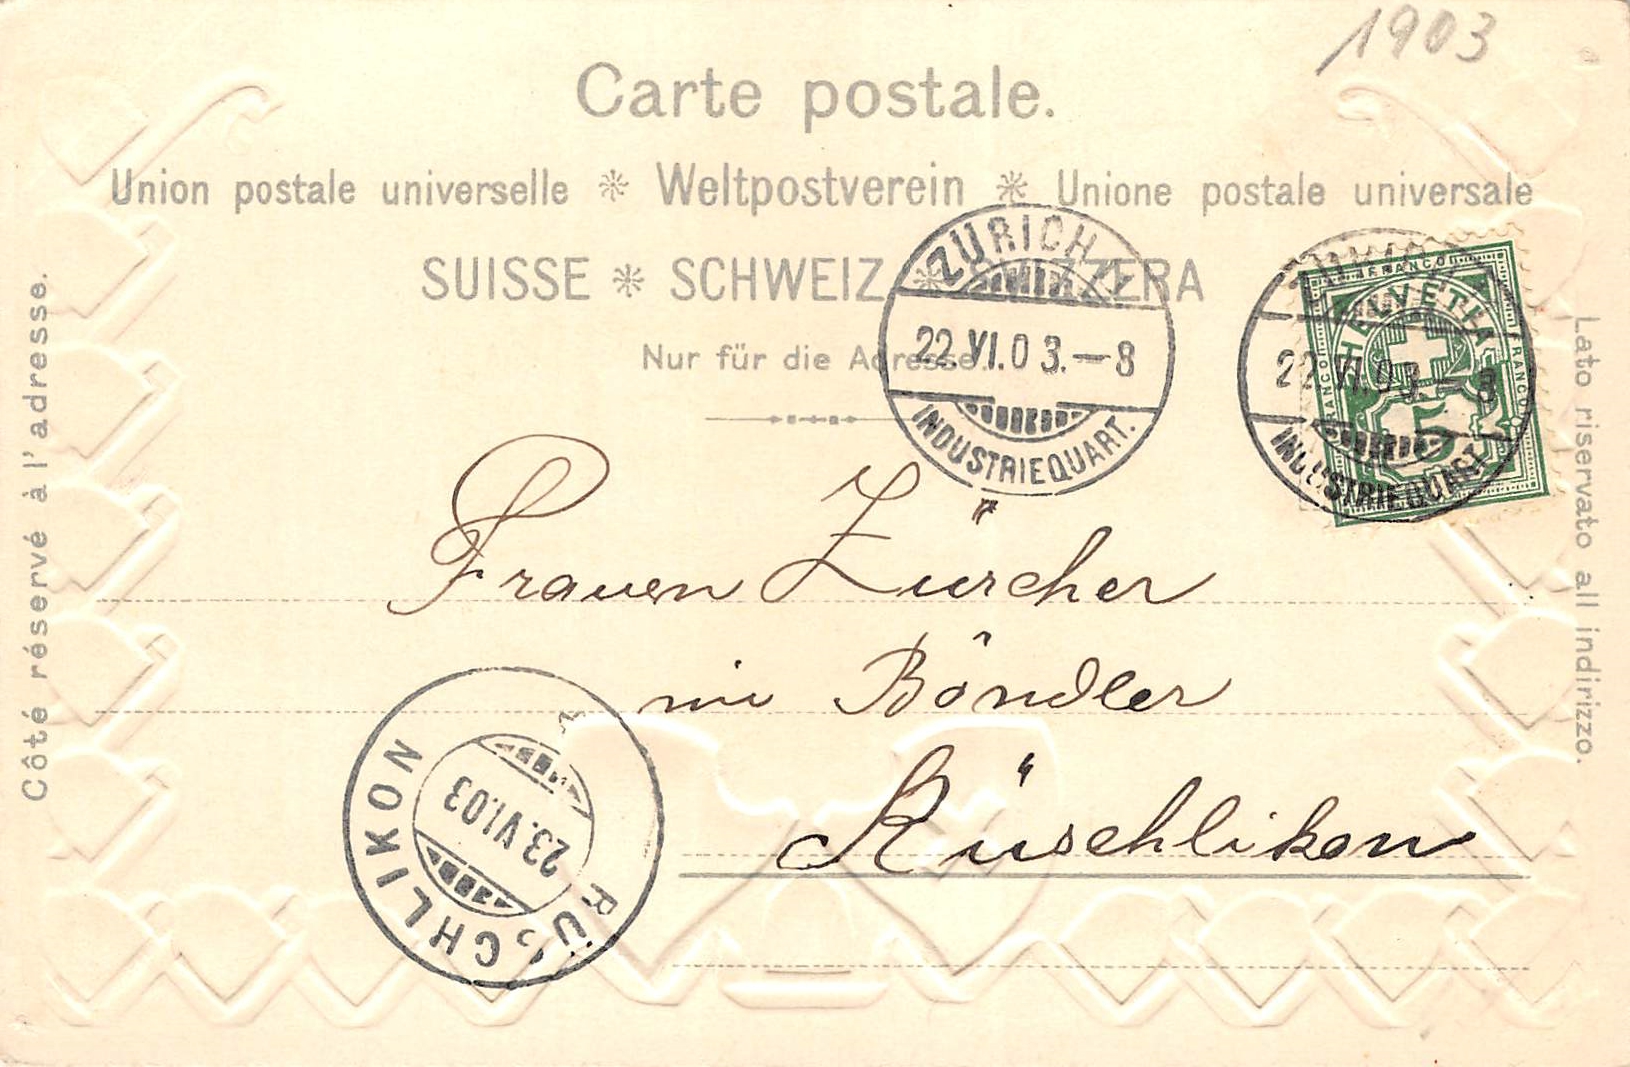 1903
Carte postale.
Union postale universelle * Weltpostverein * Unione postale universale
SUISSE * SCHWEIZ * SVIZZERA
Nur für die Adresse.
Côté réservé à l'adresse.
Lato riservato all indirizzo.
ZÜRICH
22.VI.03.–8
INDUSTRIEQUART.
ZÜRICH
22.VI.03.–8
INDUSTRIEQUART.
FRANCO
HELVETIA
FRANCO
FRANCO
5
Frauen Zürcher
im Böndler
Rüschlikon
RÜSCHLIKON
23.VI.03